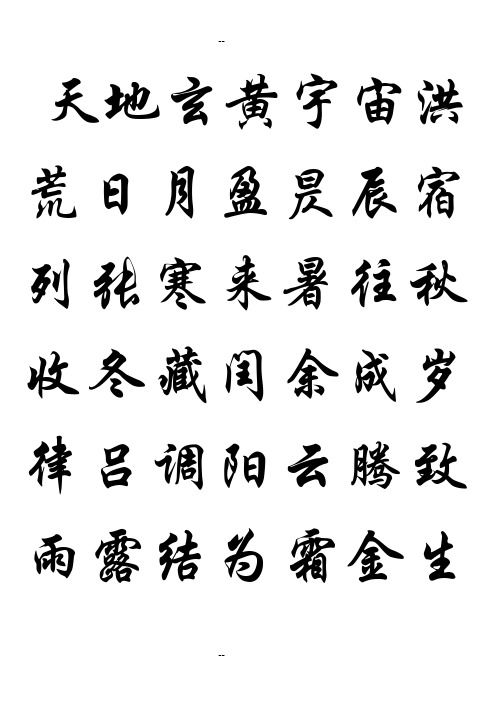 --
天地玄黄宇宙洪
荒日月盈昃辰宿
列张寒来暑往秋
收冬藏闰余成岁
律吕调阳云腾致
雨露结为霜金生
--